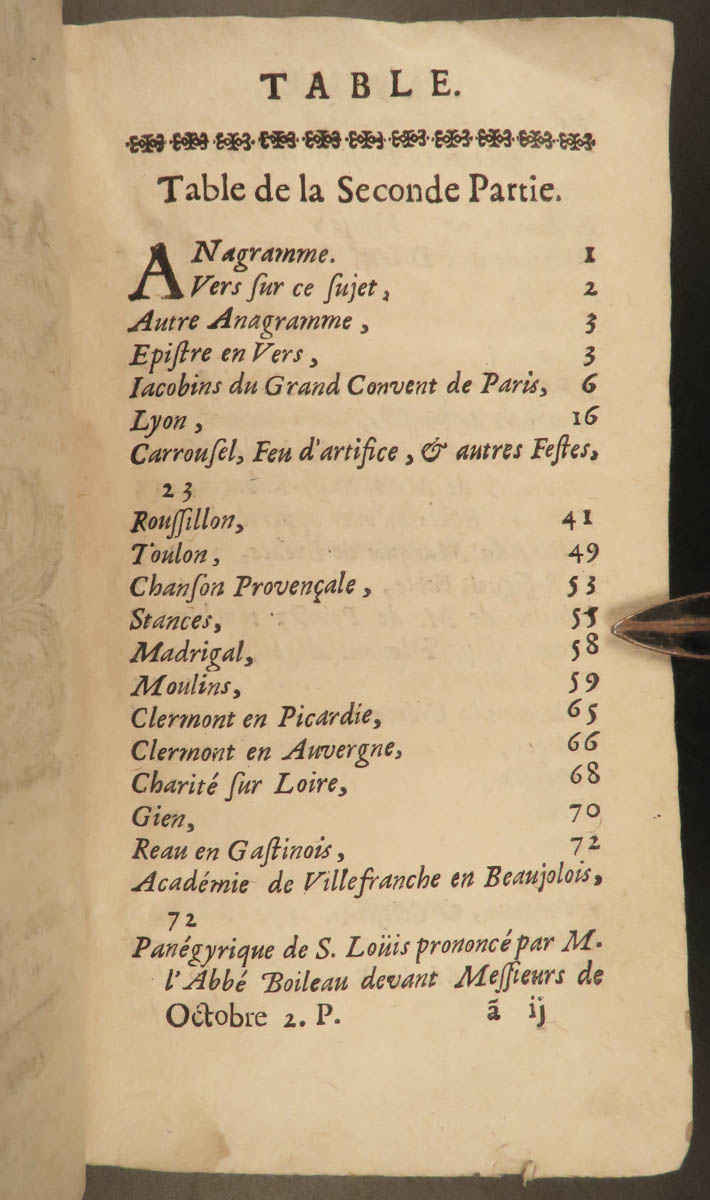 TABLE.
Table de la Seconde Partie.
ANagramme. 1
Vers ſur ce ſujet, 2
Autre Anagramme, 3
Epiſtre en Vers, 3
Iacobins du Grand Convent de Paris, 6
Lyon, 16
Carrouſel, Feu d'artifice, & autres Feſtes,
23
Rouſſillon, 41
Toulon, 49
Chanſon Provençale, 53
Stances, 55
Madrigal, 58
Moulins, 59
Clermont en Picardie, 65
Clermont en Auvergne, 66
Charité ſur Loire, 68
Gien, 70
Reau en Gaſtinois, 72
Académie de Villefranche en Beaujolois,
72
Panégyrique de S. Loüis prononcé par M.
l'Abbé Boileau devant Meſſieurs de
Octobre 2. P. ã ij